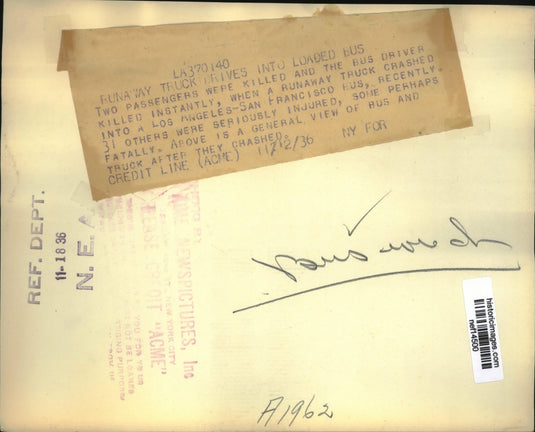 LA370140
RUNAWAY TRUCK DRIVES INTO LOADED BUS
TWO PASSENGERS WERE KILLED AND THE BUS DRIVER
KILLED INSTANTLY, WHEN A RUNAWAY TRUCK CRASHED
INTO A LOS ANGELES-SAN FRANCISCO BUS, RECENTLY.
31 OTHERS WERE SERIOUSLY INJURED, SOME PERHAPS
FATALLY. ABOVE IS A GENERAL VIEW OF BUS AND
TRUCK AFTER THEY CRASHED.
CREDIT LINE (ACME) 11/12/36 NY FOR
REF. DEPT.
11-18 36
N. E. A.
PHOTO BY
ACME NEWSPICTURES, Inc
NEW YORK CITY
PLEASE CREDIT "ACME"
historicimages.com
nef14500
A1962